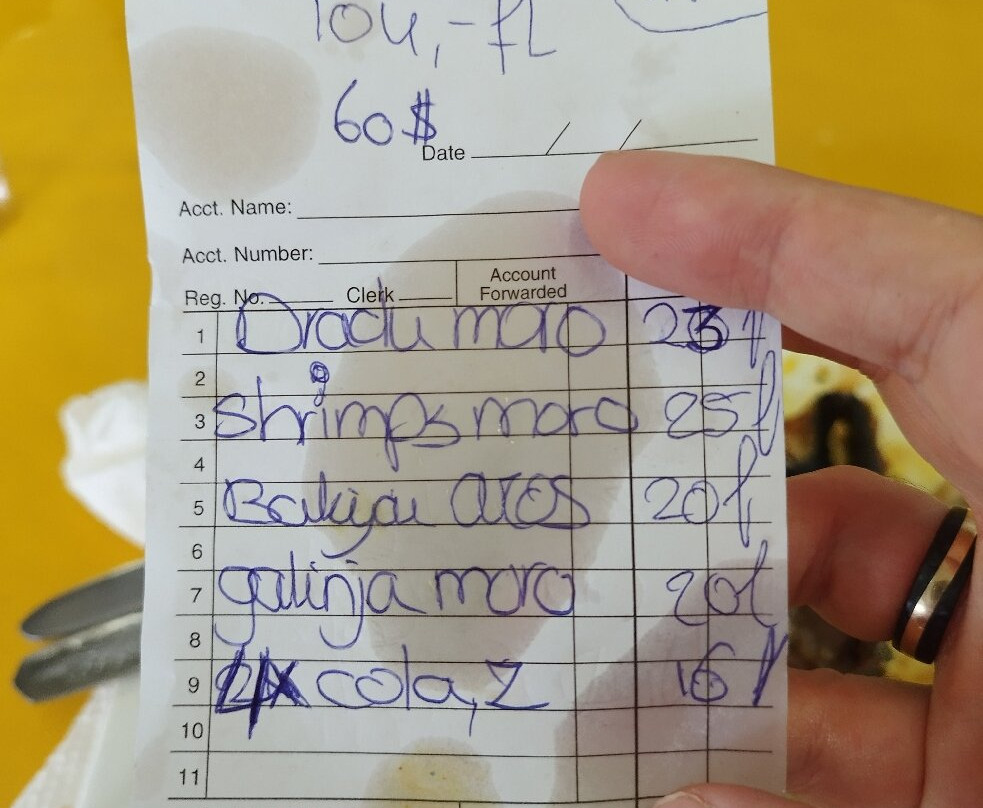 104,-fl
60$
Date / /
Acct. Name:
Acct. Number:
Reg. No. Clerk Account Forwarded
1 Dradu moro 23 f
2
3 Shrimps moro 25 f
4
5 aros 20 f
6
7 galinja moro 20 f
8
9 4x cola, Z 16 f
10
11